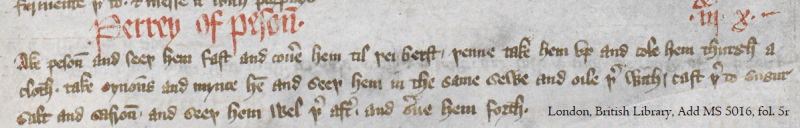 frumente þ to. & messe it with porpays
Perrey of pesoñ.
.iii. x.
Ake pesoñ and seeþ hem fast and cou̾e hem til þei berst. þenne take hem vp and cole hem thurgh a
cloth. take oynoñs and mynce hē and seeþ hem in the same sewe and oile þ̾ with, cast þ̾ to sugur
salt and safroñ. and seeþ hem wel þ̾ aft̾. and s̾ue hem forth.
London, British Library, Add MS 5016, fol. 5r